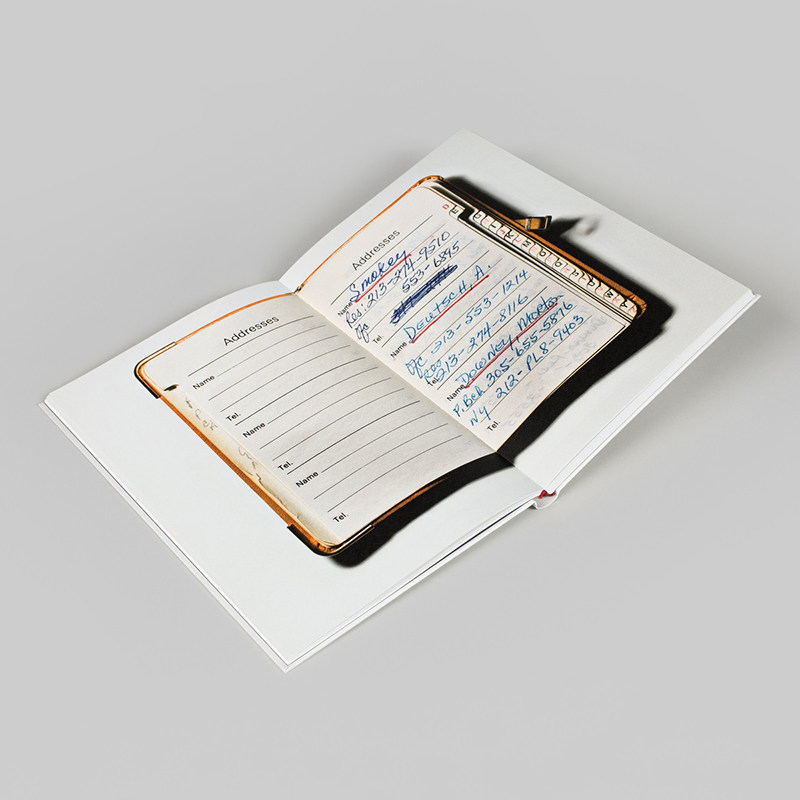 Addresses
Name
Tel.
Name
Tel.
Name
Tel.
Addresses
Name Smokey
Res: 213-274-9510
Ofc 553-6895
Tel.
Name DEUTSCH, A.
Ofc 213-553-1214
Tel. Res 213-274-8116
Name DOWNEY, MORTON
P. Bch 305-655-5876
NY 212-PL8-9403
Tel.